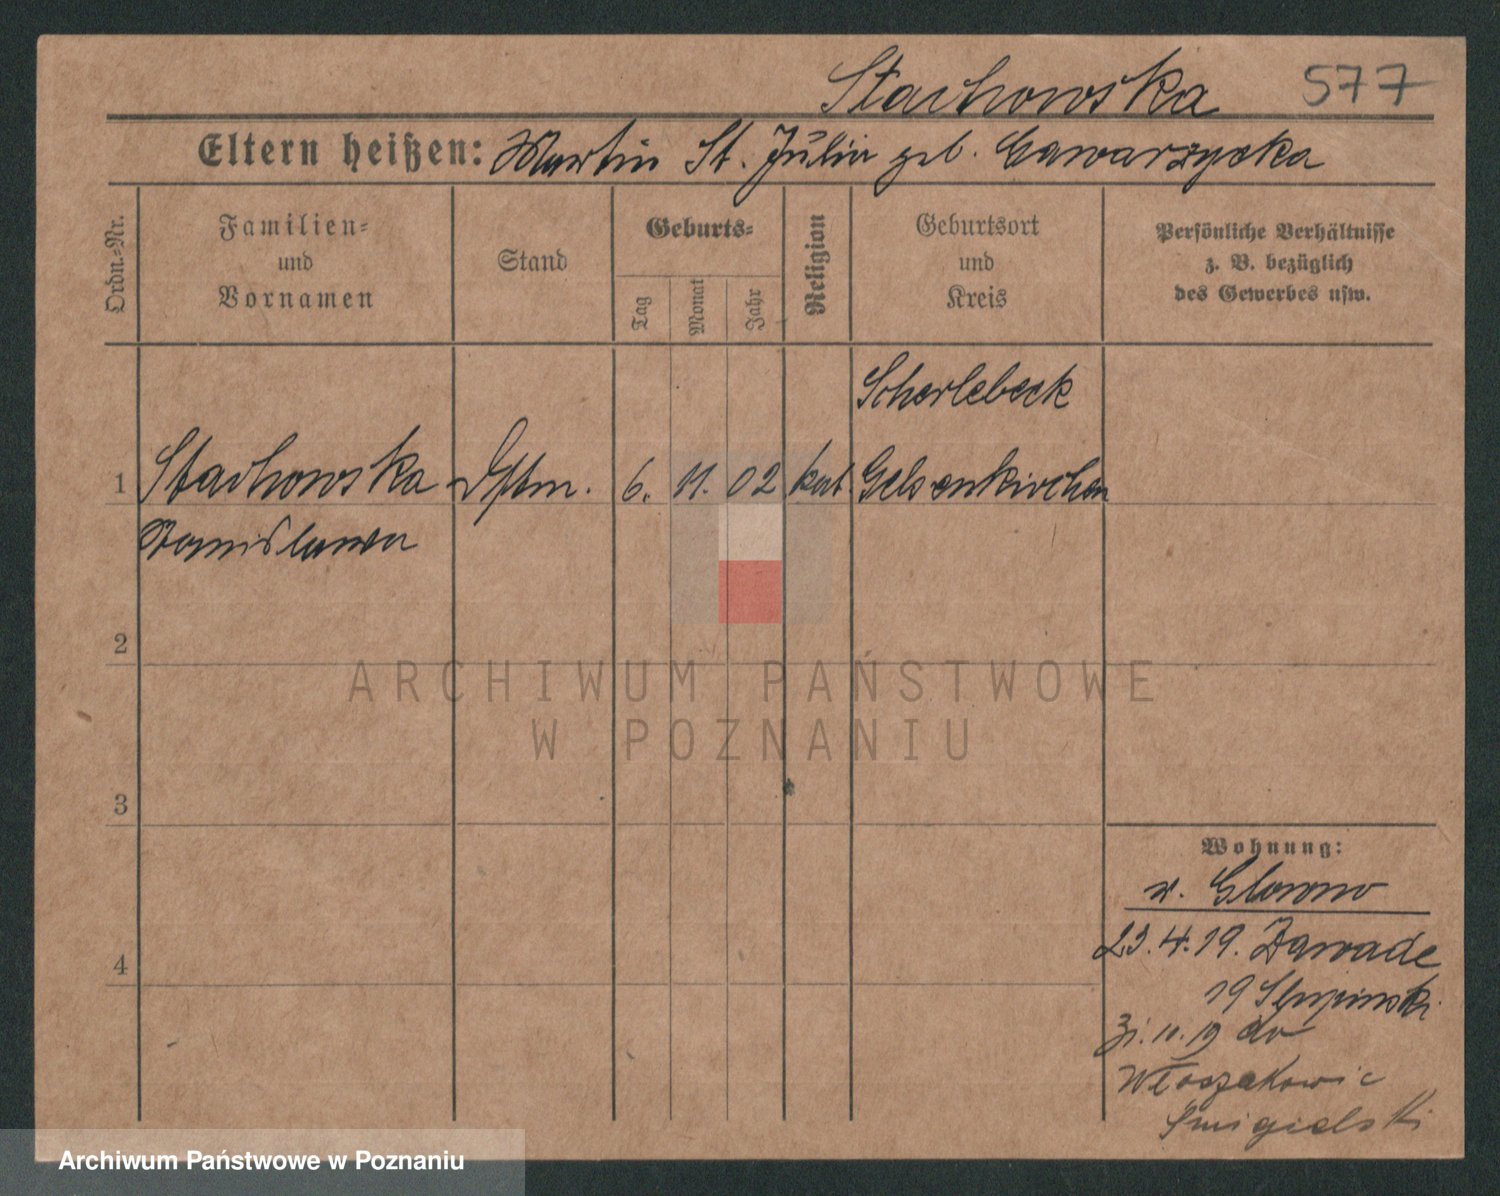 Stachowska 577
Eltern heißen: Martin St. Julia geb. Gawarzycka
Ordn.-Nr.
Familien- und Vornamen
Stand
Geburts-
Tag
Monat
Jahr
Religion
Geburtsort und Kreis
Persönliche Verhältnisse
z. B. bezüglich
des Gewerbes usw.
Scherlebeck
1 Stachowska 6. 11. 02 kat. Gelsenkirchen
Stanislawa
2
3
4
Wohnung:
v. Glowno
23.4.19. Zawade
19 Slupinski
31.10.19 do
Włoszakowic
Smigielski
ARCHIWUM PAŃSTWOWE
W POZNANIU
Archiwum Państwowe w Poznaniu